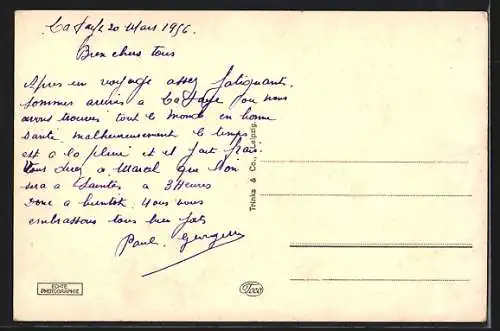 La Faye 20 Mars 1956.
Bien chers tous
Apres un voyage assez fatiguant.
sommes arrivés a La Faye ou nous
avons trouvés tout le monde en bonne
santé. malheureusement le temps
est a la pluie et il fait frais.
Vous direz a Marcel que l'on
sera a Saintes a 3 Heures
Donc a bientôt. Nous vous
embrassons tous bien fort
Paul.
Trinks & Co., Leipzig.
ECHTE
PHOTOGRAPHIE
Trico